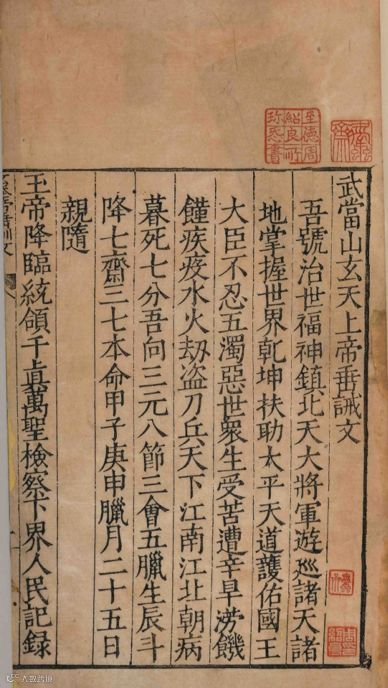 至德周
紹良所
珎愛書
武當山玄天上帝垂誡文
吾號治世福神鎮北天大將軍遊廵諸天諸
地掌握世界乾坤扶助太平天道護佑國王
大臣不忍五濁惡世衆生受苦遭辛旱澇饑
饉疾疫水火刼盗刀兵天下江南江北朝病
暮死七分吾向三元八節三會五臘生辰斗
降七齋三七本命甲子庚申臘月二十五日
親隨
玉帝降臨統領千眞萬聖檢察下界人民記録